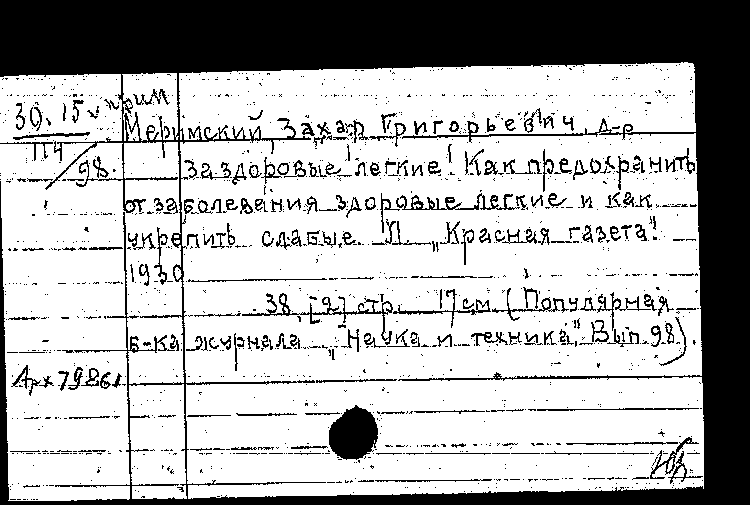 30.15 прим
114/98.
Меримский, Захар Григорьевич, д-р
За здоровые легкие! Как предохранить
от заболевания здоровые легкие и как
укрепить слабые. Л. "Красная газета".
1930
38, [2] стр. 17 см. (Популярная
б-ка журнала "Наука и техника", Вып. 98).
Арх 79861